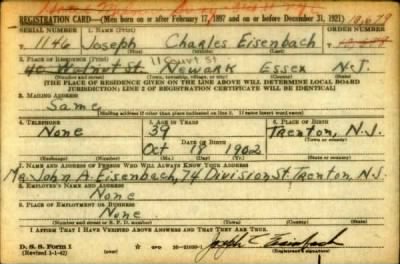 REGISTRATION CARD—(Men born on or after February 17, 1897 and on or before December 31, 1921)
SERIAL NUMBER 1. NAME (Print) ORDER NUMBER
T 1146 Joseph Charles Eisenbach 10,679
(First) (Middle) (Last)
2. PLACE OF RESIDENCE (Print)
11 Court St
40 Walnut St Newark Essex N.J.
(Number and street) (Town, township, village, or city) (County) (State)
[THE PLACE OF RESIDENCE GIVEN ON THE LINE ABOVE WILL DETERMINE LOCAL BOARD
JURISDICTION; LINE 2 OF REGISTRATION CERTIFICATE WILL BE IDENTICAL]
3. MAILING ADDRESS
Same
[Mailing address if other than place indicated on line 2. If same insert word same]
4. TELEPHONE 5. AGE IN YEARS 6. PLACE OF BIRTH
None 39 Trenton, N.J.
DATE OF BIRTH (Town or county)
Oct 18 1902
(Exchange) (Number) (Mo.) (Day) (Yr.) (State or country)
7. NAME AND ADDRESS OF PERSON WHO WILL ALWAYS KNOW YOUR ADDRESS
John A. Eisenbach, 74 Division St. Trenton, N.J.
8. EMPLOYER'S NAME AND ADDRESS
None
9. PLACE OF EMPLOYMENT OR BUSINESS
None
(Number and street or R. F. D. number) (Town) (County) (State)
I AFFIRM THAT I HAVE VERIFIED ABOVE ANSWERS AND THAT THEY ARE TRUE.
D. S. S. Form 1
(Revised 1-1-42) GPO Joseph C Eisenbach
(Registrant's signature)